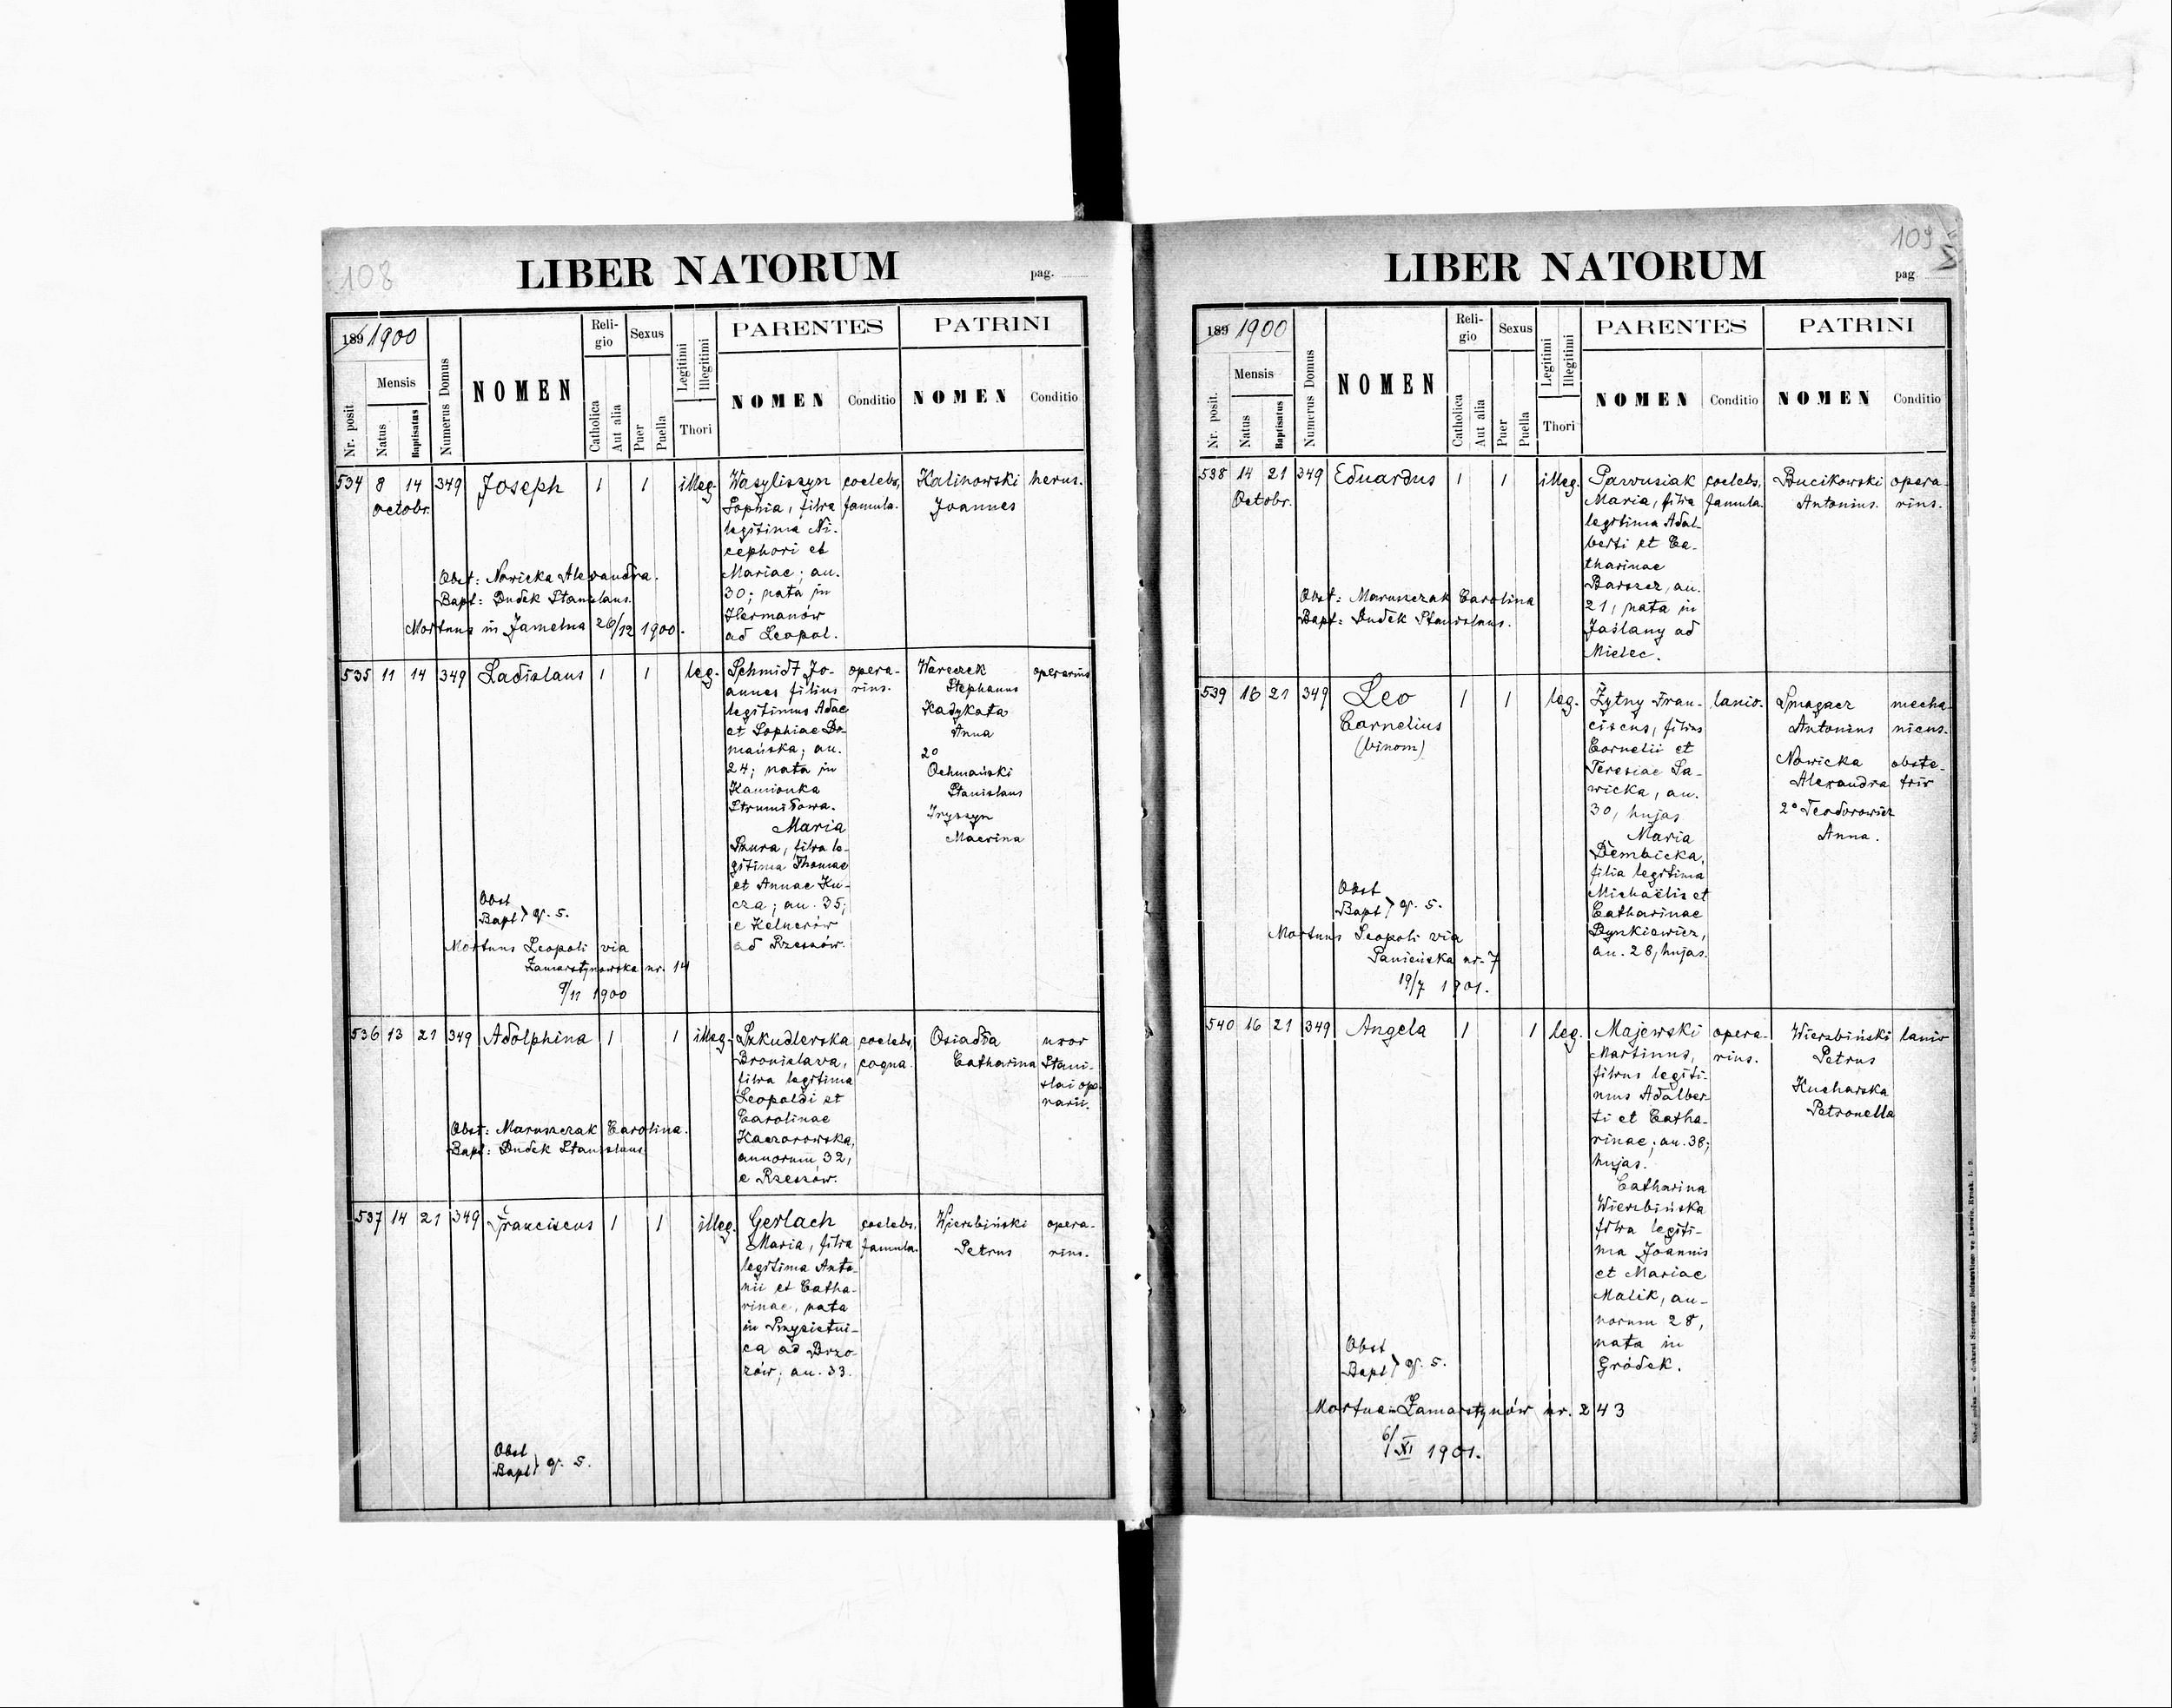 108
LIBER NATORUM
pag.
189 1900
Nr. posit
Mensis
Natus
Baptisatus
Numerus Domus
NOMEN
Religio
Catholica
Aut alia
Sexus
Puer
Puella
Legitimi
Illegitimi
Thori
PARENTES
NOMEN
Conditio
PATRINI
NOMEN
Conditio
534 8 14 349 Joseph 1 1 illeg.
octobr.
Wasyliszyn
Sophia, filia
legitima Ni-
cephori et
Mariae; an.
30; nata in
Hermanów
ad Leopol.
coelebs,
famula.
Kalinowski
Joannes
herus.
Obst: Nowicka Alexandra.
Bapt: Dudek Stanislaus.
Mortuus in Jamelna 26/12 1900.
535 11 14 349 Ladislaus 1 1 leg.
Schmidt Jo-
annes filius
legitimus Adae
et Sophiae Do-
mańska; an.
24; nata in
Kamionka
Strumiłowa.
Maria
Szura, filia le-
gitima Thomae
et Annae Ku-
cza; an. 35;
e Kelnerów
ad Rzeszów.
opera-
rius.
Wareczek
Stephanus
Kadykata
Anna
2°
Ochmański
Stanislaus
Tryszyn
Macrina
operarius
Obst
Bapt } q. s.
Mortuus Leopoli via
Zamarstynowska nr. 14
9/11 1900
536 13 21 349 Adolphina 1 1 illeg.
Szkudlerska
Bronislava,
filia legitima
Leopoldi et
Carolinae
Kaczorowska,
annorum 32,
e Rzeszów.
coelebs,
coqua.
Osiadła
Catharina
uxor
Stani-
slai ope-
rarii.
Obst: Maruszczak Carolina.
Bapt: Dudek Stanislaus
537 14 21 349 Franciscus 1 1 illeg.
Gerlach
Maria, filia
legitima Anto-
nii et Catha-
rinae, nata
in Przysietni-
ca ad Brzo-
zów; an. 33.
coelebs,
famula.
Wierzbiński
Petrus
opera-
rius.
Obst
Bapt } q. s.
109
LIBER NATORUM
pag
189 1900
Nr. posit.
Mensis
Natus
Baptisatus
Numerus Domus
NOMEN
Religio
Catholica
Aut alia
Sexus
Puer
Puella
Legitimi
Illegitimi
Thori
PARENTES
NOMEN
Conditio
PATRINI
NOMEN
Conditio
538 14 21 349 Eduardus 1 1 illeg.
Octobr.
Parvusiak
Maria, filia
legitima Adal-
berti et Ca-
tharinae
Barszcz, an.
21, nata in
Jaślany ad
Mielec.
coelebs,
famula.
Bucikowski
Antonius.
opera-
rius.
Obst: Maruszczak Carolina
Bapt: Dudek Stanislaus.
539 16 21 349 Leo 1 1 leg.
Cornelius
(binom)
Żytny Fran-
ciscus, filius
Cornelii et
Teresiae Sa-
wicka, an.
30, hujas
Maria
Dembicka,
filia legitima
Michaëlis et
Catharinae
Dynkiewicz,
an. 28, hujas.
lanio.
Smagacz
Antonius
Nowicka
Alexandra
2° Teodorowicz
Anna.
mecha-
nicus.
obste-
trix
Obst
Bapt } q. s.
Mortuus Leopoli via
Panieńska nr. 7
19/7 1901.
540 16 21 349 Angela 1 1 leg.
Majewski
Martinus,
filius legiti-
mus Adalber-
ti et Catha-
rinae; an. 38;
hujas.
Catharina
Wierzbińska
filia legiti-
ma Joannis
et Mariae
Malik, an-
norum 28,
nata in
Gródek.
opera-
rius.
Wierzbiński
Petrus
Kucharska
Petronella
lanio
Obst
Bapt } q. s.
Mortua in Zamarstynów nr. 243
6/XI 1901.